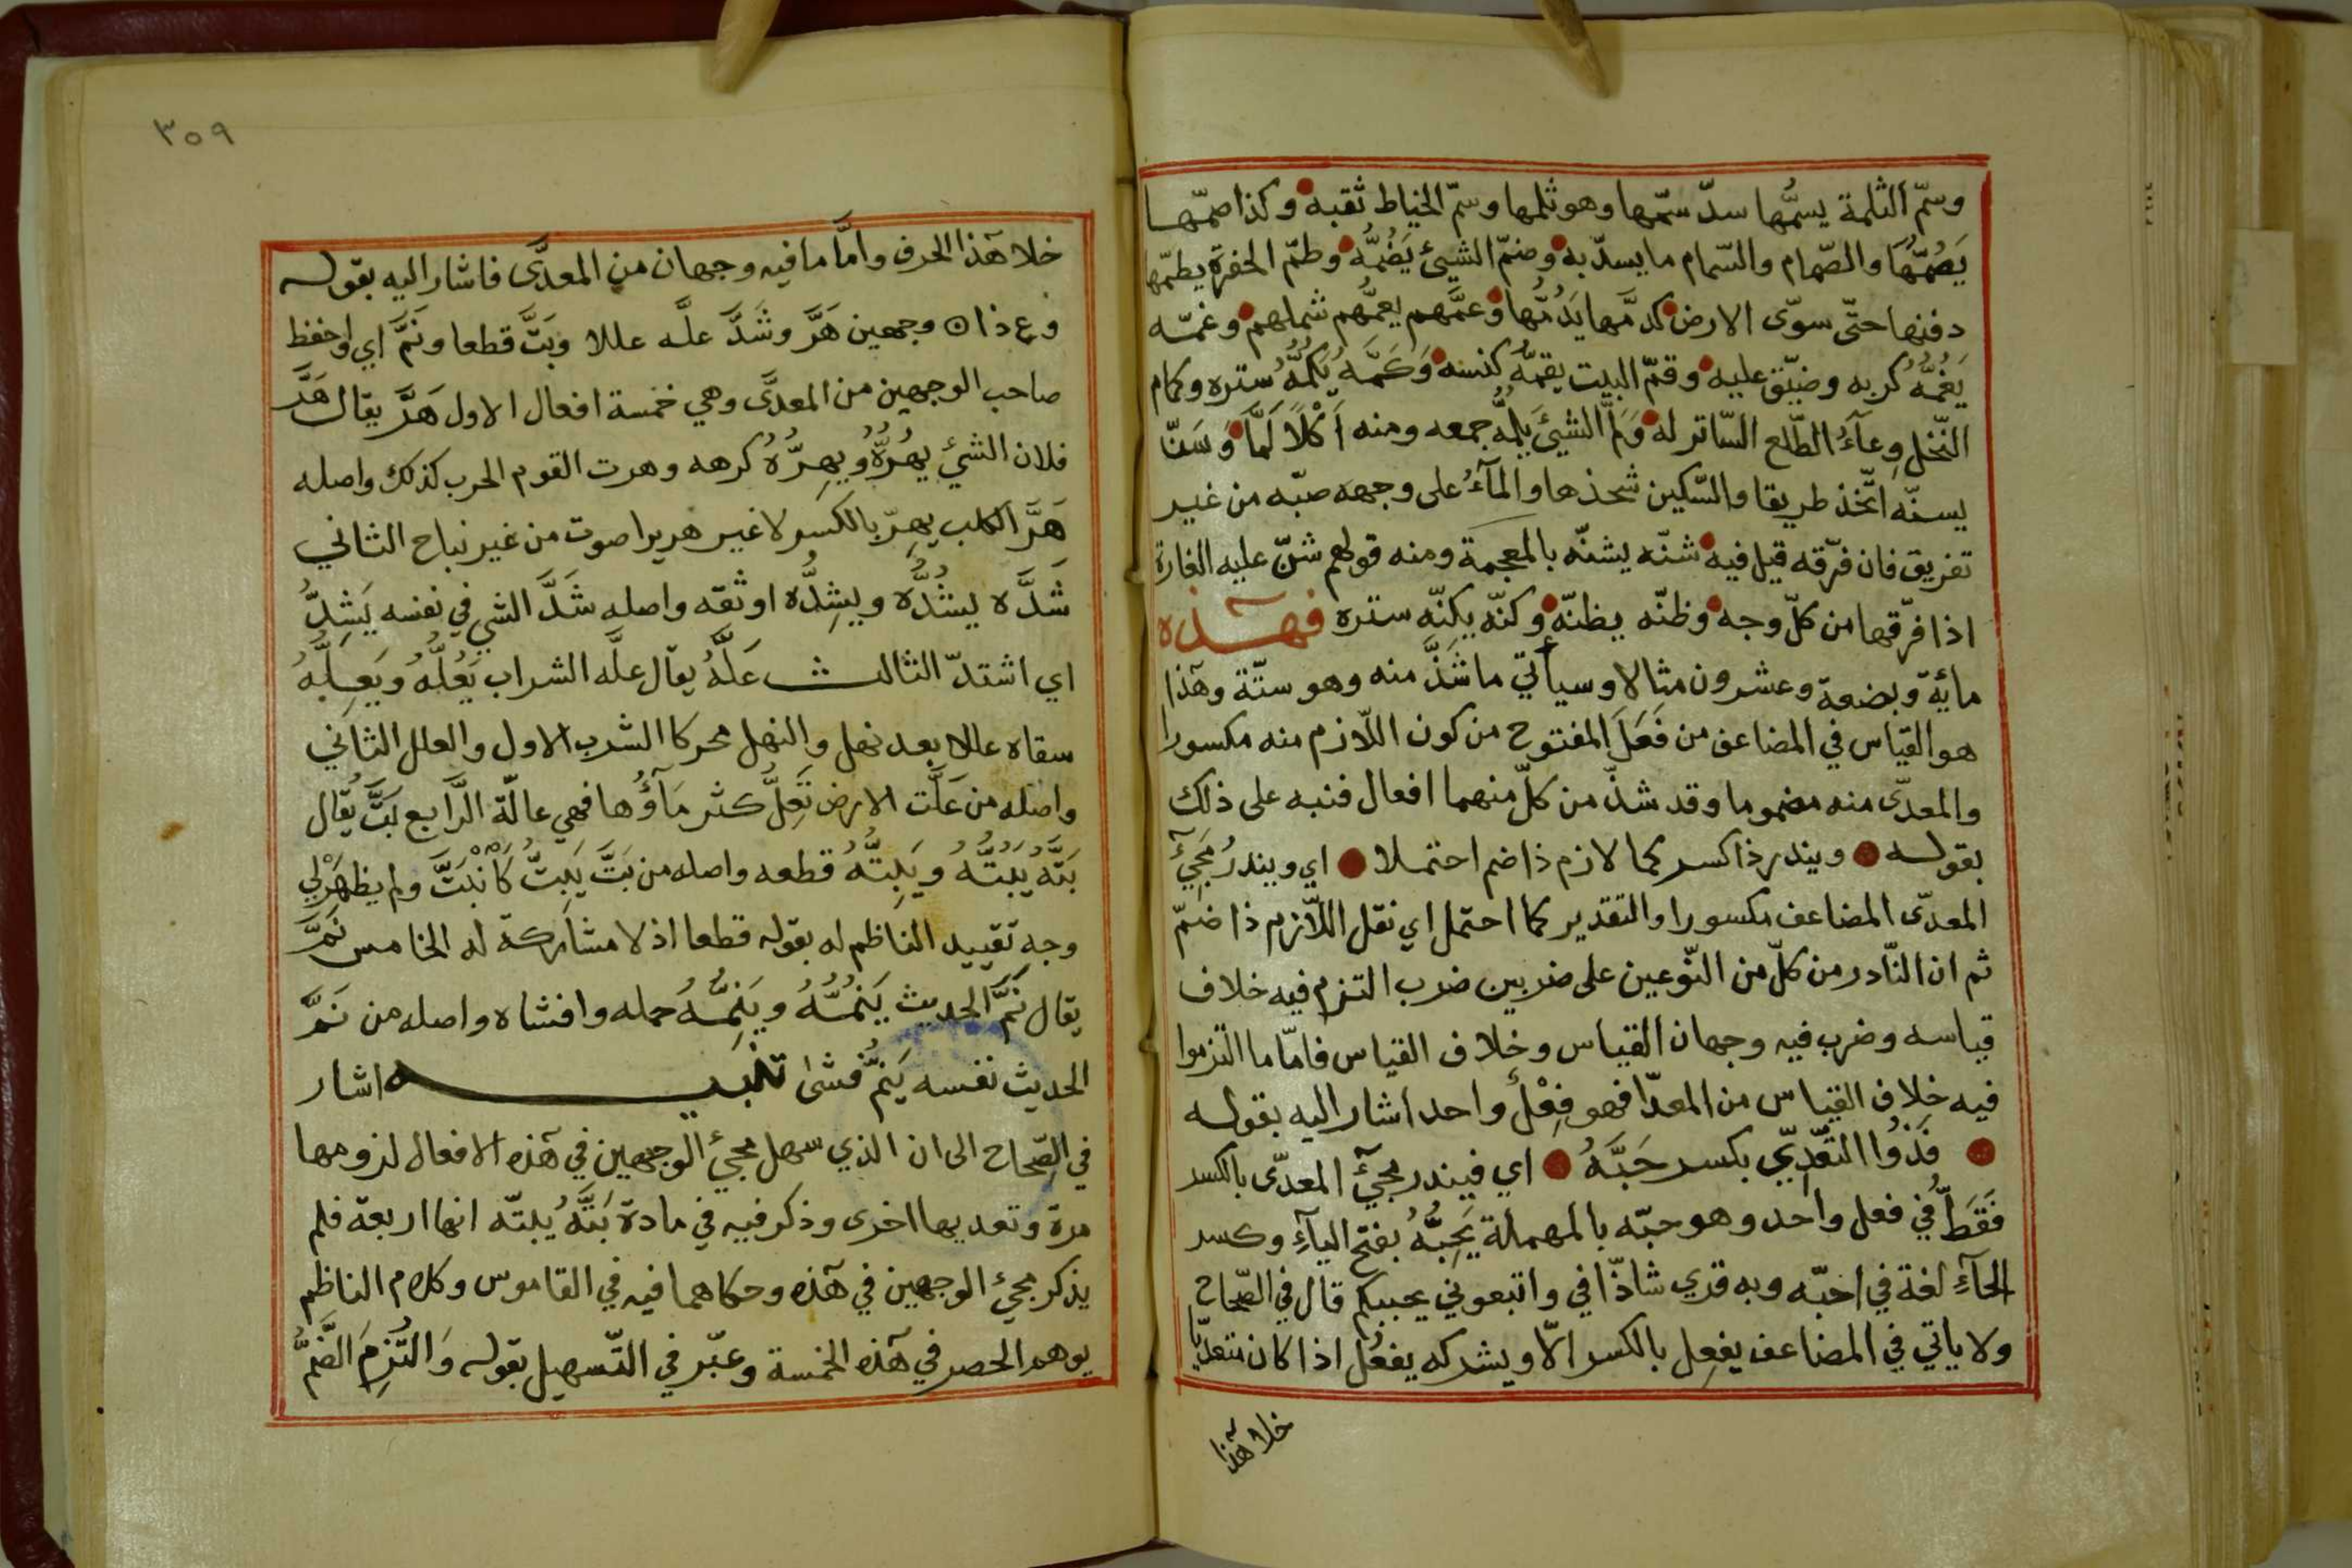 وسمّ الثلمة يسمُّها سدّ سمّها وهو ثلمها وسمّ الخياط ثقبه وكذا صمّها
يَصُمُّهَا والصّمام والسّمام ما يسدّ به وضمّ الشيئ يَضُمُّه وطمّ الحفرة يطمّها
دفنها حتّى سوّى الارض كدمَّها يَدُمُّها وعمَّهم يعمُّهم شملهم وغمّه
يَغُمُّه كربه وضيّق عليه وقمّ البيت يقمُّه كنسه وَكَمَّه يَكُمُّه ستره وكمام
النّخل وعآءُ الطّلع السّاتر له وَلمَّ الشيئَ يَلُمُّه جمعه ومنه اَكْلًا لَمًّا وَسَنّ
يسنّه اتّخذ طريقا والسّكين شحذها والمآءُ على وجهه صبّه من غير
تفريق فان فرّقه قيل فيه شنّه يشنّه بالمعجمة ومنه قولهم شنّ عليه الغارة
اذا فرّقها من كلّ وجه وظنّه يظنّه وكنّه يكنّه ستره فهذه
مائة وبضعة وعشرون مثالا وسيأتي ما شَذَّ منه وهو ستّة وهٓذا
هو القياس في المضاعف من فَعَلَ المفتوح من كون اللّازم منه مكسورا
والمعدّى منه مضموما وقد شذّ من كلّ منهما افعال فنبه على ذلك
بقوله ● ويندر ذا كسر كما لازم ذا ضم احتملا ● اي ويندرُ مَجِيٓئُ
المعدّى المضاعف مكسورا والتقدير كما احتمل اي نقل اللّازم ذا ضمّ
ثم ان النّادر من كلّ من النّوعين على ضربين ضرب التزم فيه خلاف
قياسه وضرب فيه وجهان القياس وخلاف القياس فامّا ما التزموا
فيه خلاف القياس من المعدّا فهو فِعْلٌ واحد اشار اليه بقوله
● فَذُوا التعّدِّيّ بكسر حَبَّهُ ● اي فيندر مجيٓئ المعدّى بالكسر
فَقَطْ في فعل واحد وهو حبّه بالمهملة يَحِبُّهُ بفتح اليآءِ وكسر
الحآءِ لغة في احبّه وبه قري شاذّا في واتبعوني يحببكم قال في الصّحاح
ولا ياتي في المضاعف يفعِل بالكسر الّا ويشركه يفعُل اذا كان متعدّيا
خلا هٓذا
٣٥٩
خلا هٓذا الحرف وامَّا ما فيه وجهان من المعدَّى فاشار اليه بقوله
وعِ ذا ⊙ وجهين هَرَّ وشَدَّ علَّه عللا وبَتَّ قطعا ونَمَّ اي واحفظ
صاحب الوجهين من المعدَّى وهي خمسة افعال الاول هَرَّ يقال هَرَّ
فلان الشيئ يهُرُّهُ ويهِرُّهُ كرهه وهرت القوم الحرب كذلك واصله
هَرَّ الكلب يهِرّ بالكسر لا غير هريرا صوت من غير نباح الثاني
شَدَّه يشُدُّه ويشِدُّه اوثقه واصله شَدَّ الشي في نفسه يَشِدُّ
اي اشتدّ الثالث عَلَّهُ يقال علَّه الشراب يَعُلُّهُ ويَعِلُّهُ
سقاه عللا بعد نهل والنهل محركا الشرب الاول والعلل الثاني
واصله من عَلَّت الارض تَعِلُّ كثر مَآؤُها فهي عالّة الرَّابع بَتَّ يُقال
بَتَّهُ يَبُتُّهُ ويَبِتُّهُ قطعه واصله من بَتَّ يَبِتُّ كَانْبَتَّ ولم يظهَرْ لي
وجه تقييد الناظم له بقوله قطعا اذ لا مشاركة له الخامس نَمَّ
يقال نَمَّ الحديث يَنُمُّهُ ويَنِمُّهُ حمله وافشاه واصله من نَمَّ
الحديث نفسه يَنِمُّ فشىٰ تنبيه اشار
في الصِّحاح الى ان الذي سهل مجيئ الوجهين في هٓذه الافعال لزومها
مرة وتعديها اخرى وذكر فيه في مادة بَتَّهُ يبتّه انها اربعة فلم
يذكر مجيئ الوجهين في هٓذه وحكاهما فيه في القاموس وكلام الناظم
يوهم الحصر في هٓذه الخمسة وعبّر في التّسهيل بقوله وَالتُزِمَ الضَّمُّ